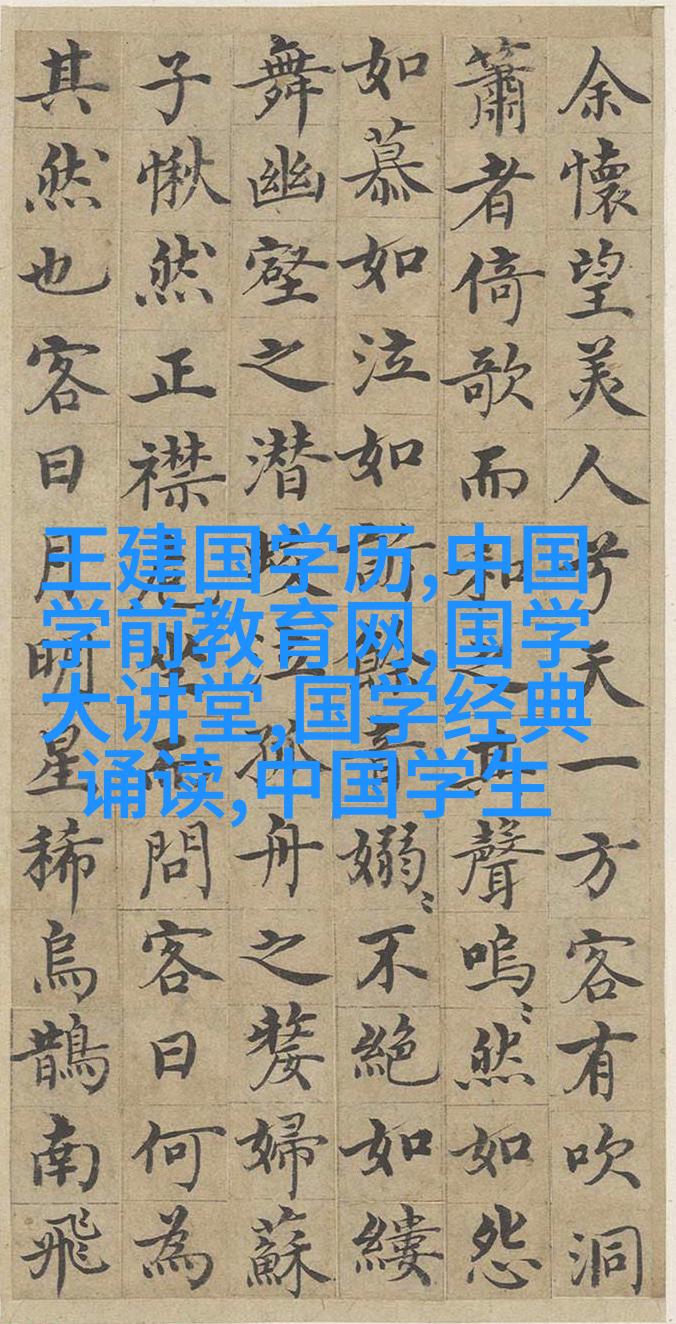 余懷望美人兮天一方客有吹洞
簫者倚歌而和之其聲嗚〻然如怨
如慕如泣如訴餘音嫋〻不絕如縷
舞幽壑之潜蛟泣孤舟之嫠婦蘇
子愀然正襟危坐而問客曰何為
其然也客曰月明星稀烏鵲南飛
王建国学历,中国
学前教育网,国学
大讲堂,国学经典
诵读,中国学生